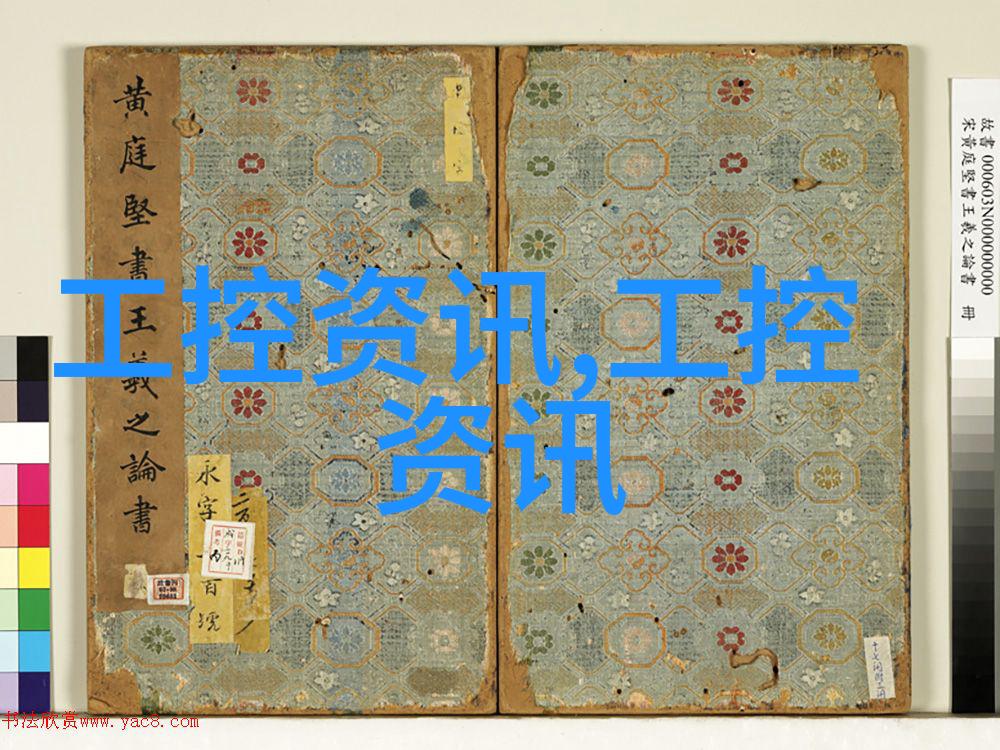 工控资讯,工控
资讯
黄庭堅書王羲之論書
永字
百號
故書 000603N000000000
宋黄庭堅書王羲之論書 冊
书法欣赏www.yac8.com